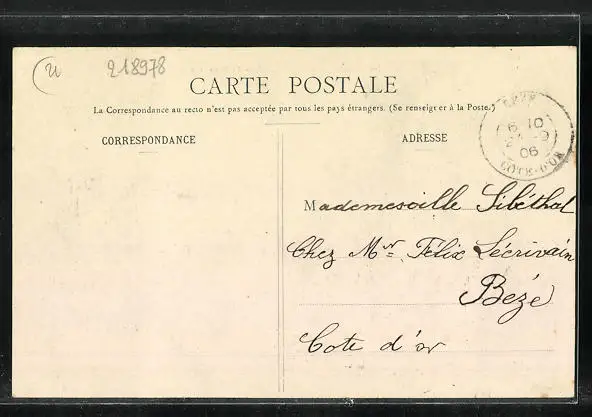 u 218978
CARTE POSTALE
La Correspondance au recto n'est pas acceptée par tous les pays étrangers. (Se renseigner à la Poste.)
CORRESPONDANCE
ADRESSE
BÈZE
6 10
06
CÔTE-D'OR
Mademesoille Sibéthal
Chez Mr Félix Lécrivain
Bezé
Cote d'or